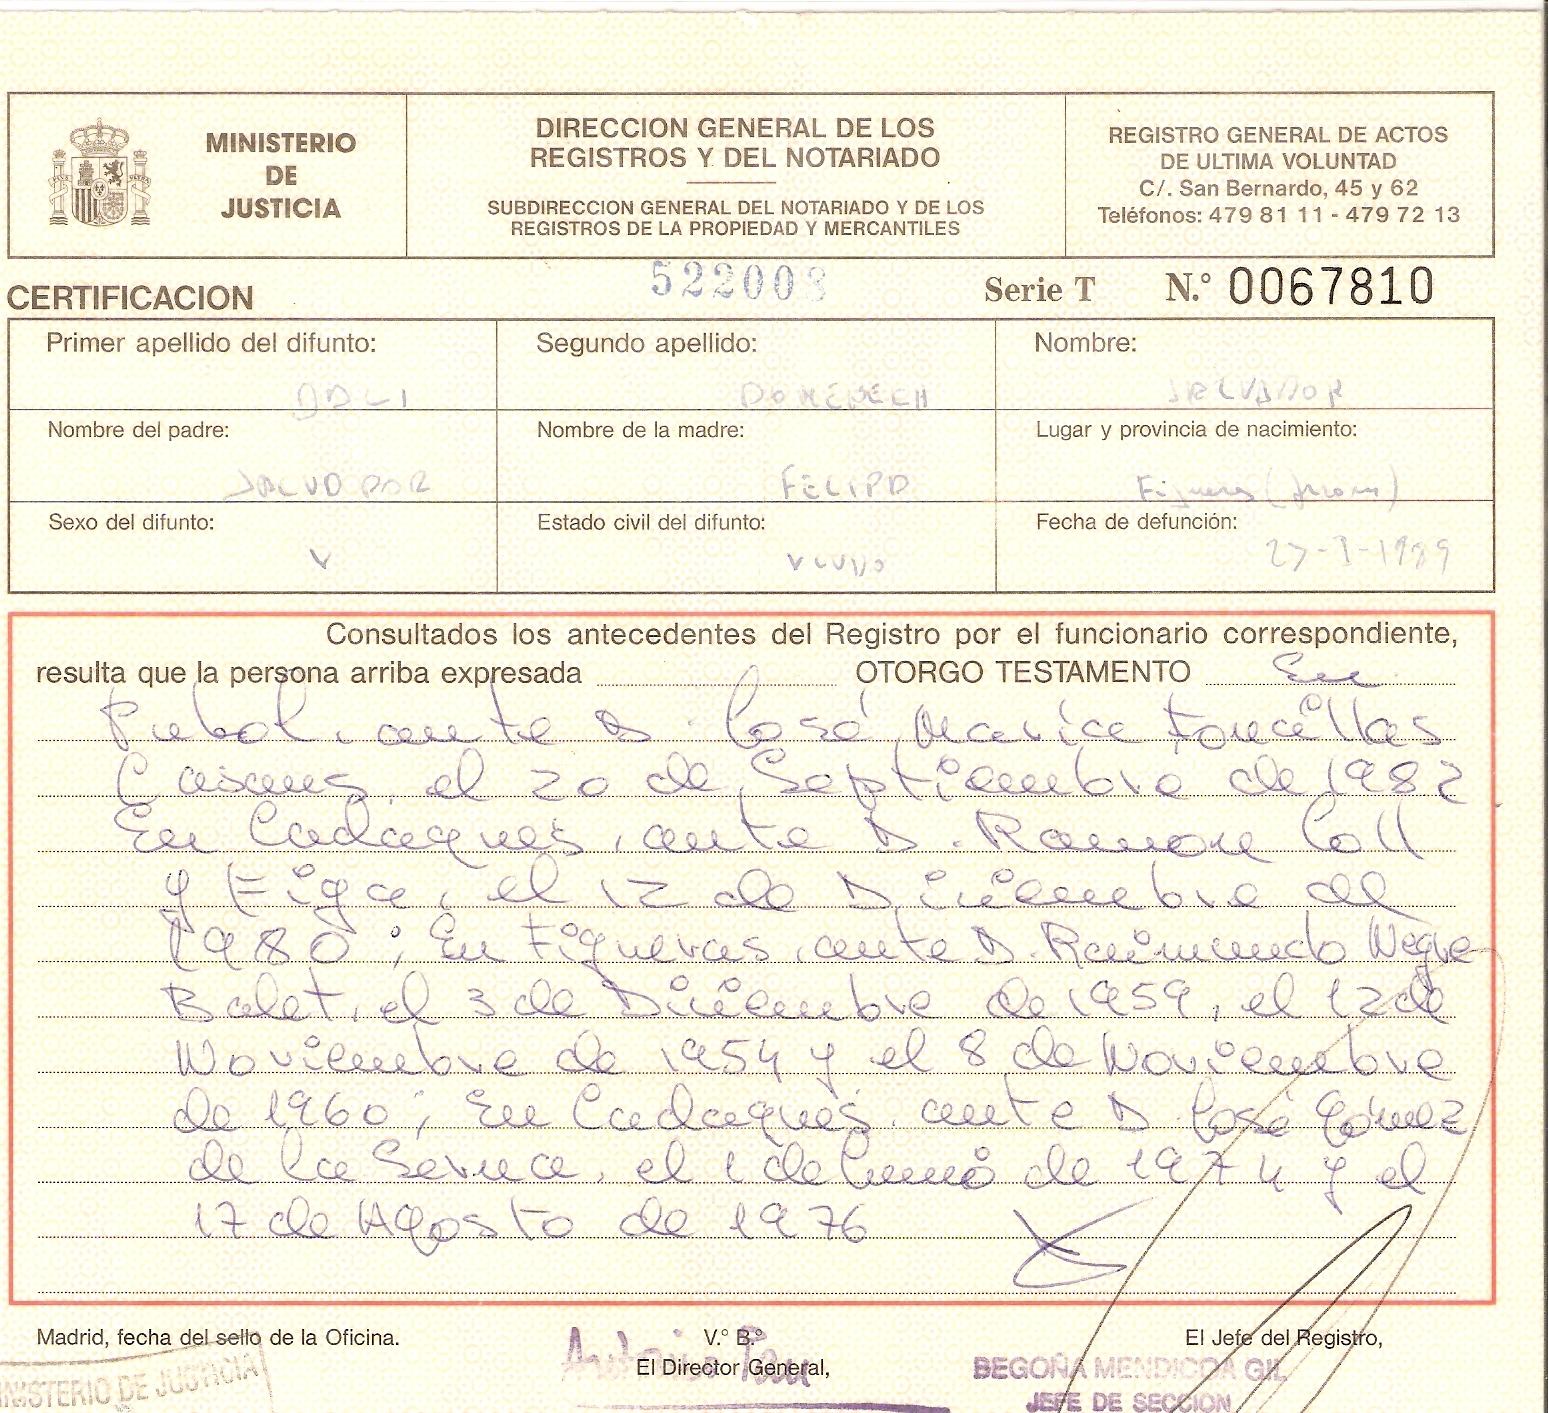 MINISTERIO
DE
JUSTICIA
DIRECCION GENERAL DE LOS
REGISTROS Y DEL NOTARIADO
SUBDIRECCION GENERAL DEL NOTARIADO Y DE LOS
REGISTROS DE LA PROPIEDAD Y MERCANTILES
REGISTRO GENERAL DE ACTOS
DE ULTIMA VOLUNTAD
C/. San Bernardo, 45 y 62
Teléfonos: 479 81 11 - 479 72 13
CERTIFICACION
522008
Serie T N.° 0067810
Primer apellido del difunto: Segundo apellido: Nombre:
DALI DOMENECH SALVADOR
Nombre del padre: Nombre de la madre: Lugar y provincia de nacimiento:
SALVADOR FELIPA Figueras
Sexo del difunto: Estado civil del difunto: Fecha de defunción:
V VIUDO -1989
Consultados los antecedentes del Registro por el funcionario correspondiente,
resulta que la persona arriba expresada OTORGO TESTAMENTO En
Pubol, ante D. José Maria Foncillas
Casaus, el 20 de Septiembre de 1982
En Cadaques, ante D. Ramon Coll
y Figa, el 12 de Diciembre de
1980; En Figueras, ante D. Raimundo Negre
Balet, el 3 de Diciembre de 1959, el 12 de
Noviembre de 1954 y el 8 de Noviembre
de 1960; En Cadaques, ante D. José Gómez
de la Serna, el 1 de Junio de 1974 y el
17 de Agosto de 1976
Madrid, fecha del sello de la Oficina. V.° B.° El Jefe del Registro,
El Director General,
Antonio Pau
MINISTERIO DE JUSTICIA
BEGOÑA MENDICOA GIL
JEFE DE SECCION